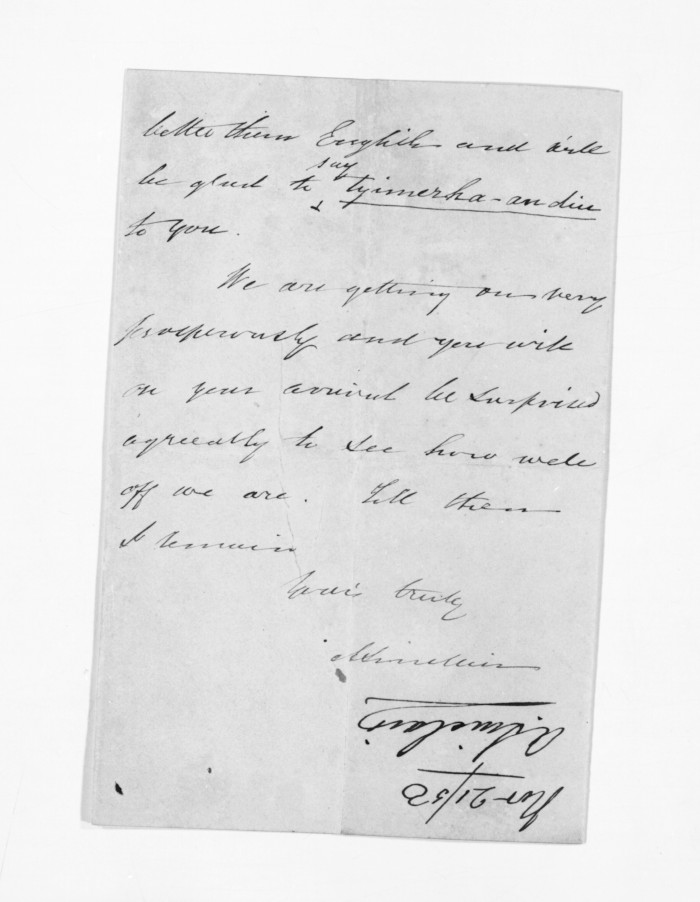 better than English and will
be glad to say tyimerka-an diu
to you.
We are getting on very
prosperously and you will
on your arrival be surprised
agreeably to see how well
off we are. Till then
I remain
Yours truly
Nov 21/53